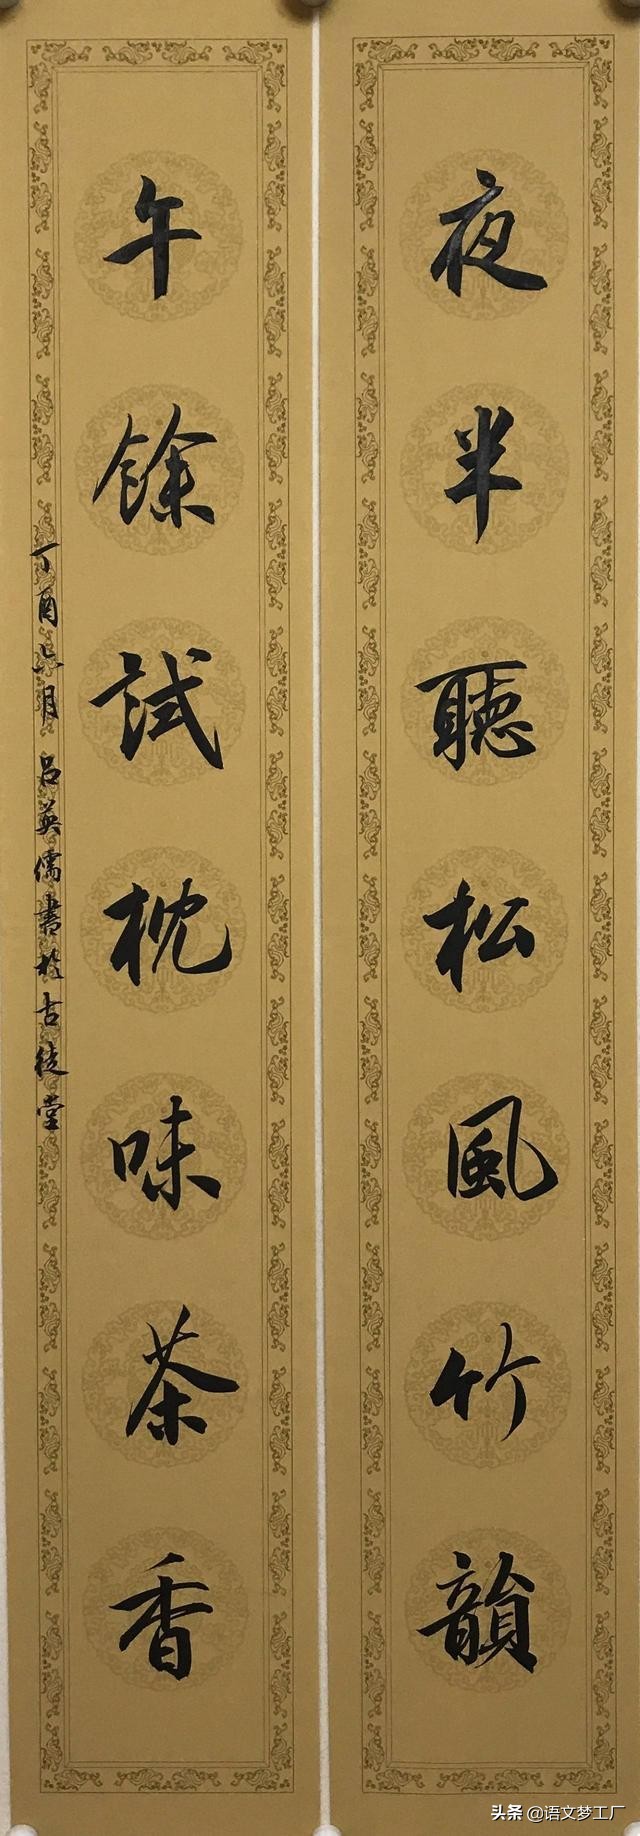 夜半聽松風竹韻
午餘試枕味茶香
丁酉六月 呂英儒書於古徒堂
头条 @语文梦工厂